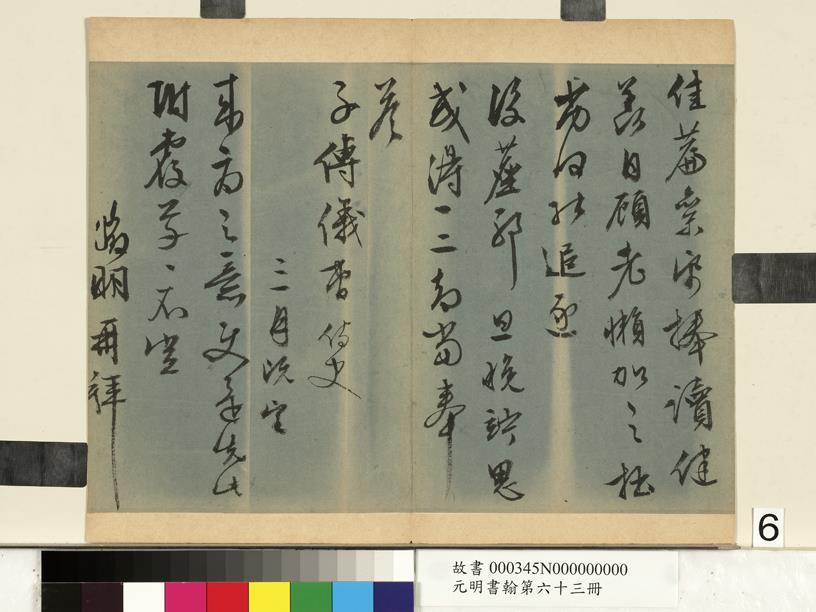 佳篇崇寄捧讀健
羨自顧老懶加之拙
劣何能追逐
後塵耶旦晚訥思
或得一二句當奉
答
子傳儀曹侍史
三月既望
來
附覆草草不罪
徵明再拜
6
故書 000345N000000000
元明書翰第六十三冊